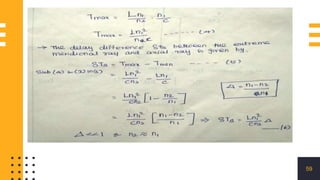 Tmax = Ln1/n2 · n1/c
Tmax = Ln1²/n2c ----- (4)
→ The delay difference STs between the extreme
meridional ray and axial ray is given by.
STs = Tmax - Tmin ---- (5)
Sub (4) in (5)
= Ln1²/cn2 - Ln1/c
= Ln1²/cn2 [1 - n2/n1]
Δ = n1-n2/n1
= Ln1²/cn2 [n1-n2/n1] ⇒ STs = Ln1²/cn2 Δ
---(6)
Δ<<1 & n2 ≈ n1
59